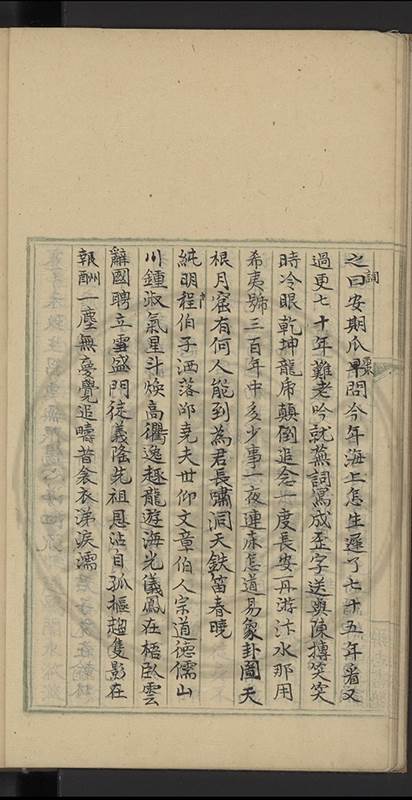 之曰安期瓜早問今年海上怎生遲了七十五年看又
詞
棗
過更七十年難老吟就蕪詞寫成歪字送與陳摶笑笑
時冷眼乾坤龍虎顛倒追念一度長安再游汴水那用
希夷號三百年中多少事一夜連床怎道易象卦圖天
根月窟有何人能到為君長嘯洞天鉄笛春曉
純明程伯子洒落邵堯夫世仰文章伯人宗道德儒山
川鍾淑氣星斗煥高衢逸趣龍遊海光儀鳳在梧臥雲
辭國聘立雪盛門徒義隆先祖恩沾自孤樞趨隻影在
報酬一塵無憂覺追疇昔衾衣涕淚濡